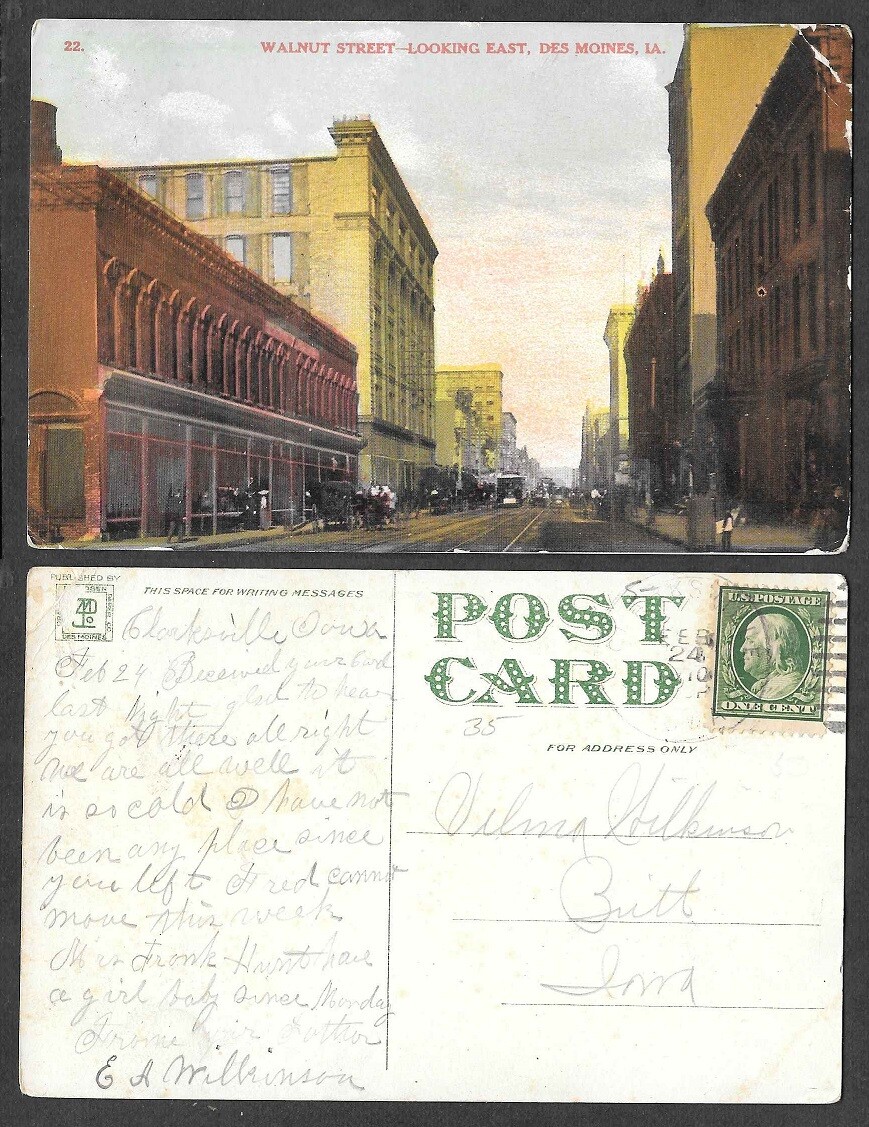 22.
WALNUT STREET—LOOKING EAST, DES MOINES, IA.
PUBLISHED BY
DES MOINES
THIS SPACE FOR WRITING MESSAGES
Clarksville Iowa
Feb 24 Received your Card
last Night glad to hear
you got there all right
we are all well it
is so cold I have not
been any place since
you left Fred cannot
move this week
Mrs Frank Hunt have
a girl baby since Monday
From your Father
E A Wilkinson
POST
CARD
FEB
24
10
U.S. POSTAGE
ONE CENT
35
FOR ADDRESS ONLY
Velma Wilkinson
Britt
Iowa